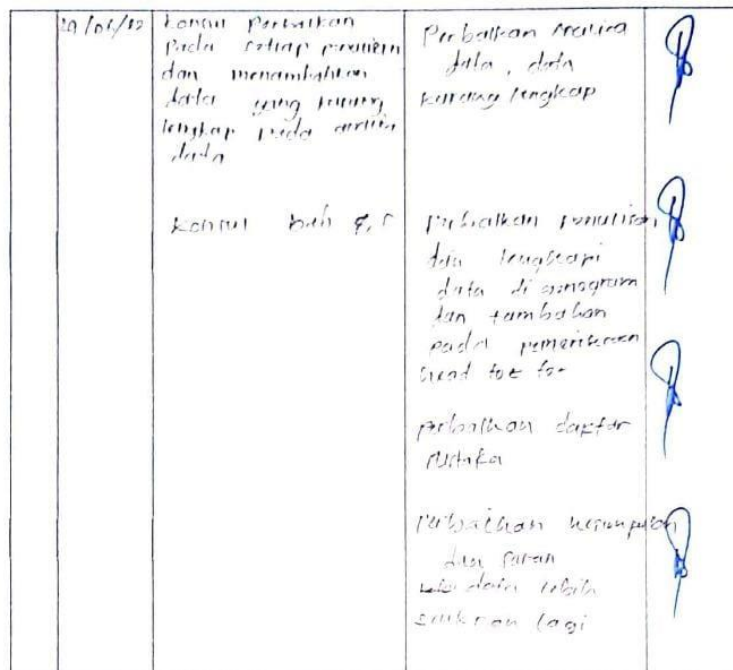 konsul Perbaikan
pada setiap
dan menambahkan
data yang kurang
lengkap pada analisa
data
Perbaikan analisa
data, data
kurang lengkap
konsul bab 4,5
Perbaikan penulisan
dan lengkapi
data di genogram
dan tambahan
pada pemeriksaan
head toe toe
perbaikan daftar
pustaka
Perbaikan kesimpulan
dan saran
data lebih
lagi